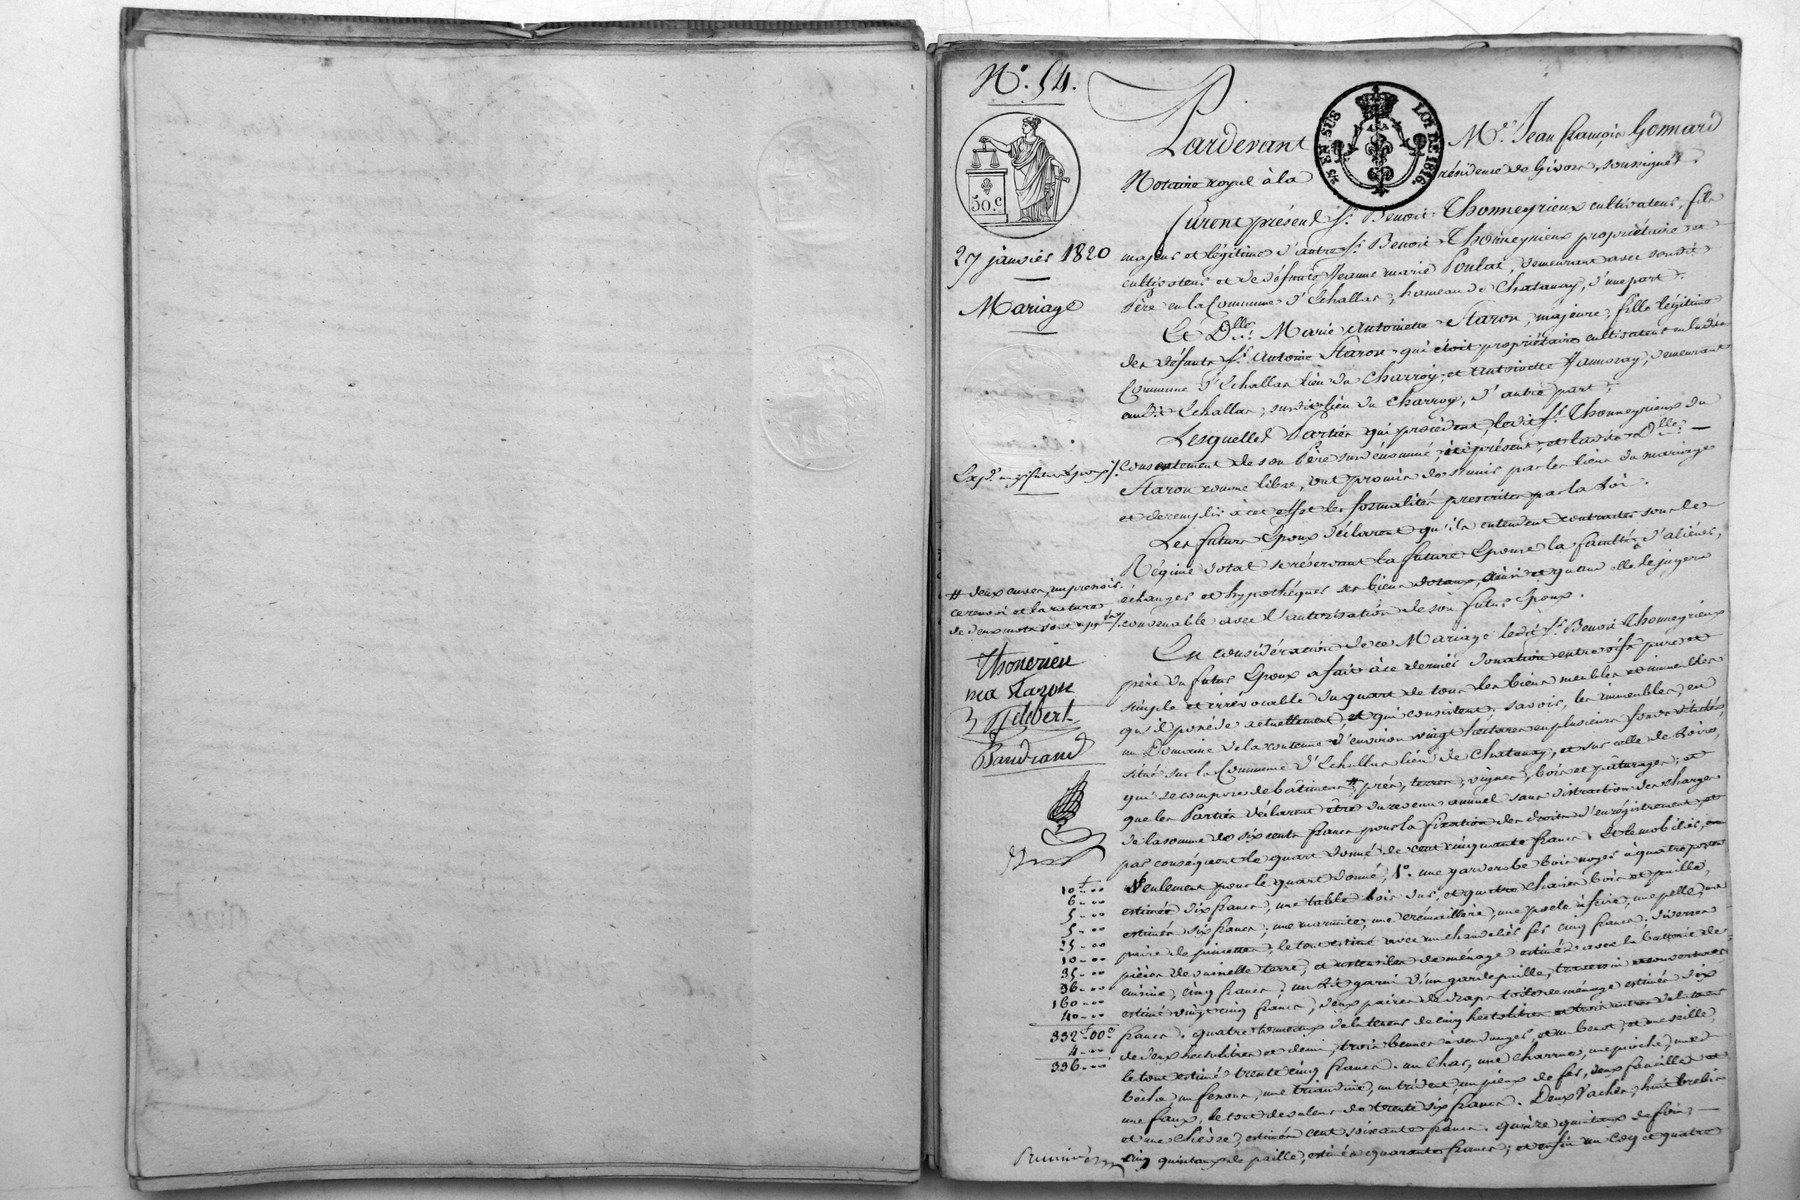 N.° 54.
50.c
5/c EN SUS LOI DE 1816.
27 janvier 1820
Mariage
Pardevant M.e Jean François Gonnard
Notaire royal à la résidence de Givors, soussigné.
Furent présent S.r Benoit Thonneyrieux cultivateur, fils
majeur et légitime d'autre S.r Benoit Thonneyrieux propriétaire et
cultivateur et de défunte Jeanne marie Poulat, demeurant avec sondit
Père en la Commune d'Echallas, hameau de Chatanay, d'une part.
Et D.lle Marie Antoinette Staron, majeure, fille légitime
des défunts S.r Antoine Staron qui étoit propriétaire cultivateur en ladite
Commune d'Echallas lieu du Charroy, et Antoinette demeurant
audit Echallas, susdit lieu du Charroy, d'autre part;
Lesquelles Parties qui procèdent, ledit S.r Thonneyrieux du
consentement de son Père susdénommé, ici présent, et ladite D.lle
Staron comme libre, ont promis de s'unir par les liens du mariage
et de remplir à cet effet les formalités prescrites par la loi.
Les futurs Epoux déclarent qu'ils entendent contracter sous le
Régime dotal se réservant la future Epouse la faculté d'aliéner,
échanger et hypothéquer ses biens dotaux, ainsi et quand elle le jugera
convenable avec l'autorisation de son futur Epoux.
En considération de ce Mariage ledit S.r Benoit Thonneyrieux
père du futur Epoux a fait à ce dernier donation entre vifs pure et
simple et irrévocable du quart de tous les biens meubles et immeubles
qu'il possède actuellement, et qui consistent, savoir, les immeubles, en
un Domaine de la contenue d'environ vingt hectares en plusieurs fonds détachés,
situé sur la Commune d'Echallas lieu de Chatanay, et sur celle de
qui se compose de bâtiments #, prés, terres, vignes, bois et pâturages; et
que les Parties déclarent être du revenu annuel sans distraction des charges
de la somme de six cents francs pour la fixation des droits d'enregistrement, et
par conséquent le quart donné de cent cinquante francs. Et le mobilier, en
seulement pour le quart donné, 1.° une garderobe bois noyer à quatre portes
estimée dix francs, une table bois dur, et quatre chaises bois et paille,
estimés six francs; une marmite, une crémaillère, une poele à frire, une pelle, une
paire de pincettes, le tout estimé avec un chandelier fer cinq francs; diverses
pièces de vaisselle terre, et ustensiles de ménage estimés avec la batterie de
cuisine, cinq francs; un lit garni d'un garde paille, traversin et couvertures
estimé vingt cinq francs; deux paires de draps toile de ménage estimés dix
francs. quatre tonneaux de la teneur de cinq hectolitres et trois autres de la teneur
de deux hectolitres et demi, trois bennes à vendanges, et un benot, et une seille,
le tout estimé trente cinq francs. un char, une charrue, une pioche, une
bêche, un fessou, une triandine, un trident, un pieux de fer, deux faucilles et
une faux, le tout de valeur de trente six francs. Deux vaches, huit brebis
et une chèvre, estimés cent soixante francs. quinze quintaux de foin,
cinq quintaux de paille, estimés quarante francs; et enfin un coq et quatre
# deux cuves, un pressoir
ce renvoi et la rature
de deux mots sont
Thonerieu
ma staron
Jilibert
Baudrand
10f-00
6-00
5-00
5-00
25-00
10-00
35-00
36-00
160-00
40-00
332f-00c
4-00
336-00